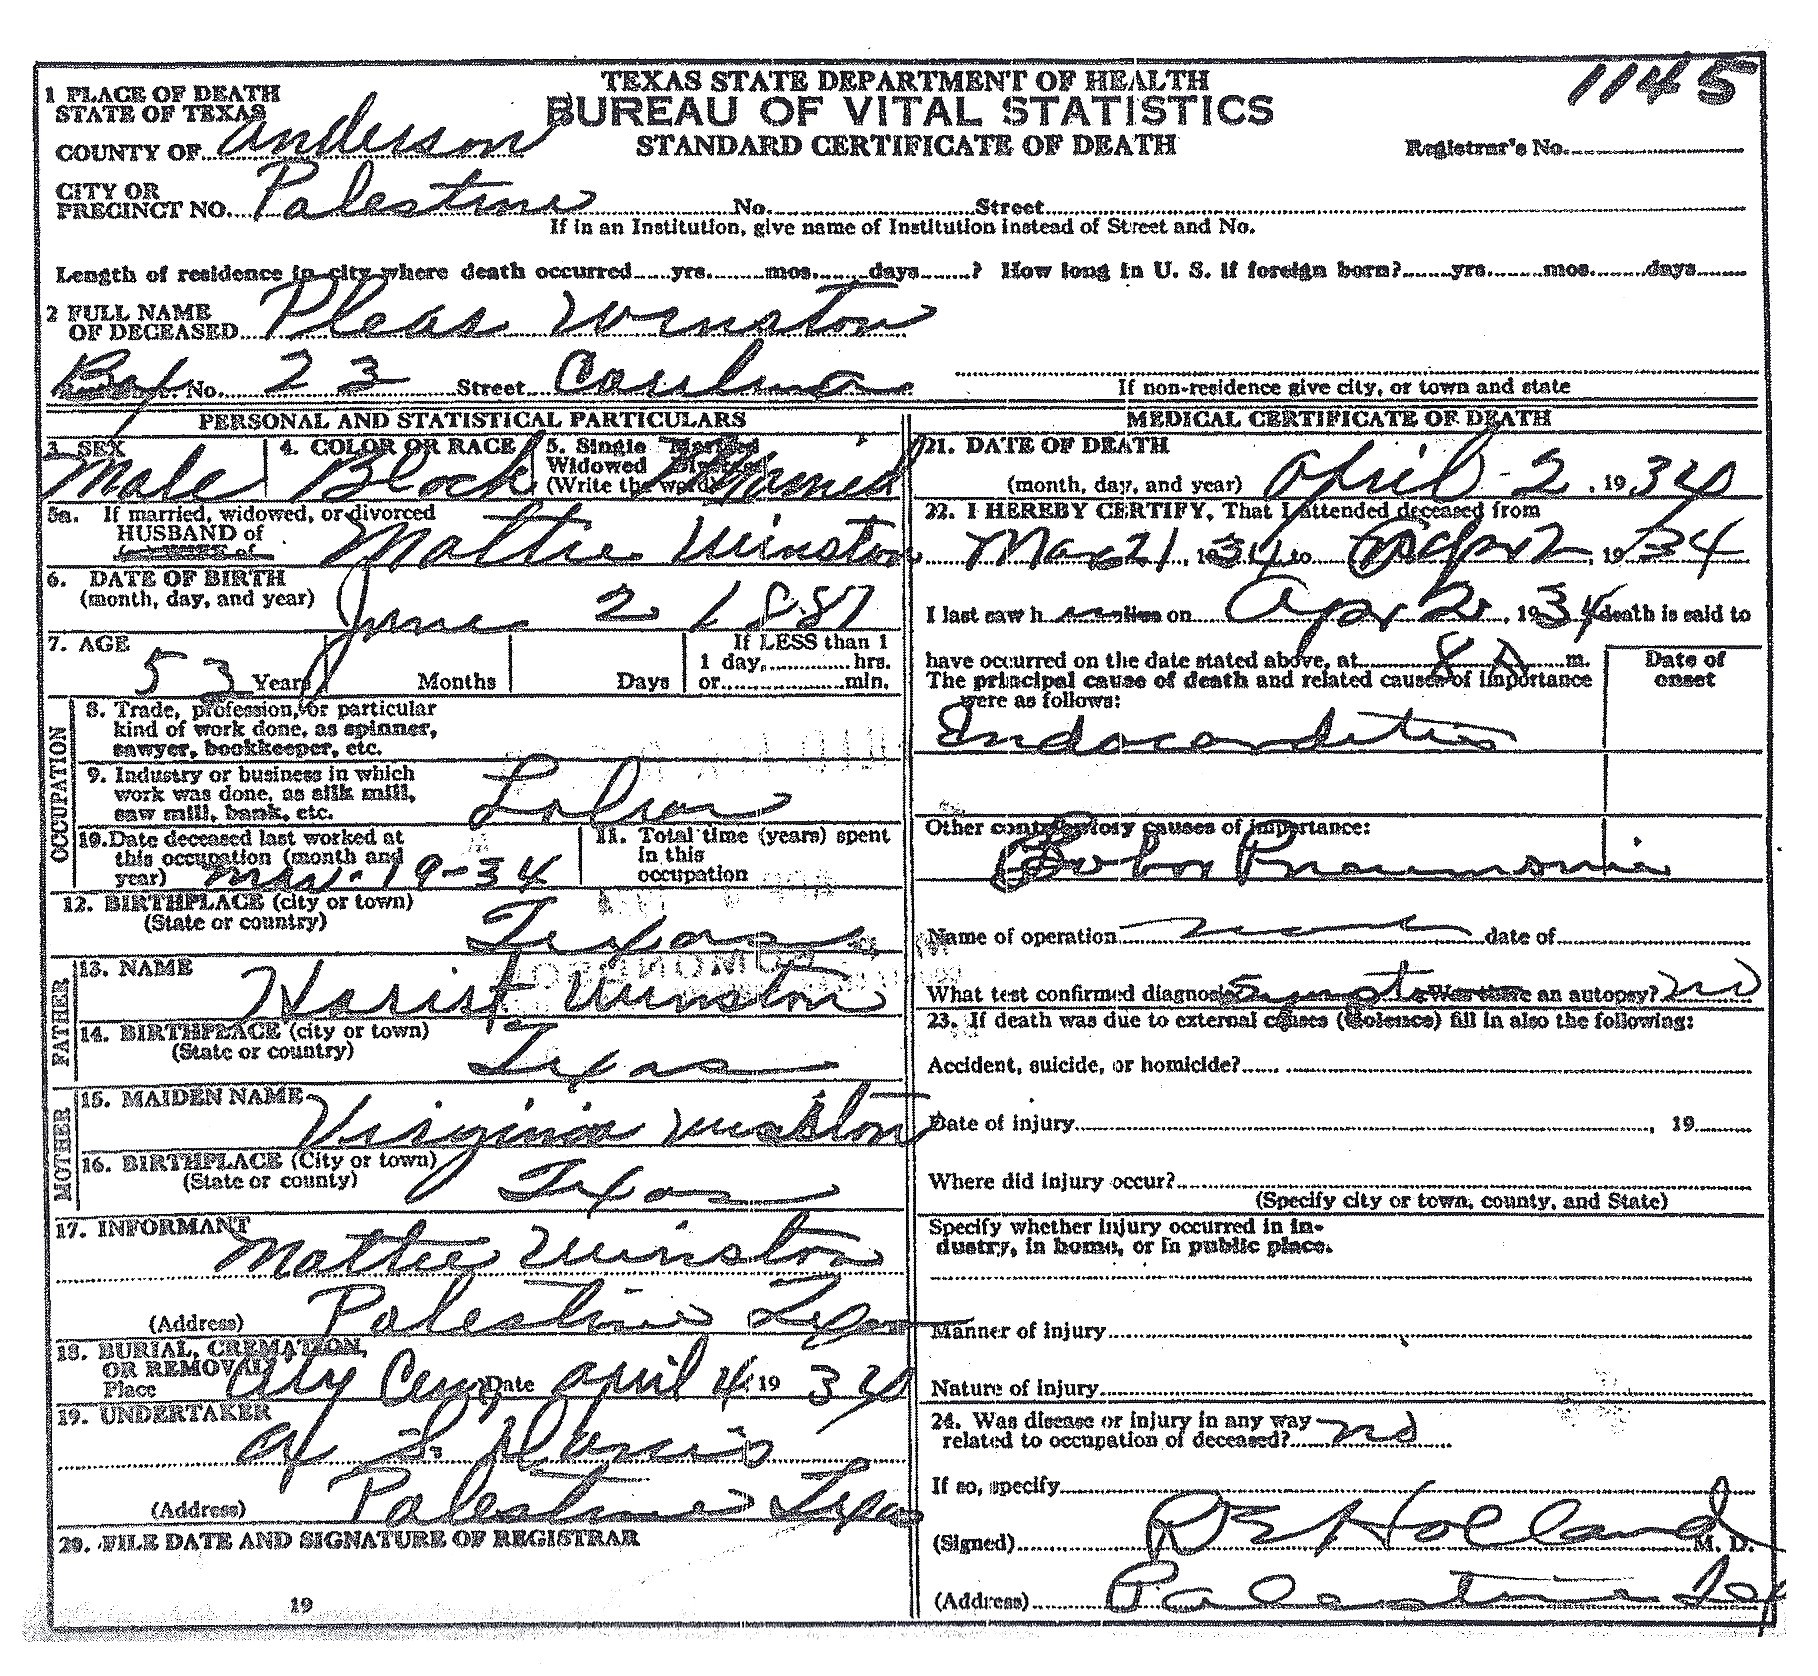 1145
TEXAS STATE DEPARTMENT OF HEALTH
BUREAU OF VITAL STATISTICS
STANDARD CERTIFICATE OF DEATH
1 PLACE OF DEATH
STATE OF TEXAS
COUNTY OF Anderson
Registrar's No.
CITY OR
PRECINCT NO. Palestine No. Street
If in an Institution, give name of Institution instead of Street and No.
Length of residence in city where death occurred yrs. mos. days ? How long in U. S. if foreign born? yrs. mos. days
2 FULL NAME
OF DECEASED Pleas Winston
Box No. 23 Street
If non-residence give city, or town and state
PERSONAL AND STATISTICAL PARTICULARS
3. SEX 4. COLOR OR RACE 5. Single Married
Widowed Divorced
(Write the word)
Male Black Married
5a. If married, widowed, or divorced
HUSBAND of
Mattie Winston
6. DATE OF BIRTH
(month, day, and year) June 2 1887
7. AGE
53 Years Months Days
If LESS than 1
1 day, hrs.
or min.
OCCUPATION
8. Trade, profession, or particular
kind of work done, as spinner,
sawyer, bookkeeper, etc.
9. Industry or business in which
work was done, as silk mill,
saw mill, bank, etc. Labor
10. Date deceased last worked at
this occupation (month and
year) Mar-19-34
11. Total time (years) spent
in this
occupation
12. BIRTHPLACE (city or town)
(State or country) Texas
FATHER
13. NAME Winston
14. BIRTHPLACE (city or town)
(State or country) Texas
MOTHER
15. MAIDEN NAME Virginia Winston
16. BIRTHPLACE (City or town)
(State or county) Texas
17. INFORMANT
Mattie Winston
(Address) Palestine Texas
18. BURIAL, CREMATION,
OR REMOVAL
Place City Cem Date April 4 1934
19. UNDERTAKER
(Address) Palestine Texas
20. FILE DATE AND SIGNATURE OF REGISTRAR
19
MEDICAL CERTIFICATE OF DEATH
21. DATE OF DEATH
(month, day, and year) April-2, 1934
22. I HEREBY CERTIFY, That I attended deceased from
Mar 21, 1934 to Apr 2, 1934
I last saw h alive on Apr 2, 1934 death is said to
have occurred on the date stated above, at 8 A m.
The principal cause of death and related causes of importance
were as follows:
Date of
onset
Endocarditis
Other contributory causes of importance:
Lobar Pneumonia
Name of operation none date of
What test confirmed diagnosis Was there an autopsy? no
23. If death was due to external causes (violence) fill in also the following:
Accident, suicide, or homicide?
Date of injury , 19
Where did injury occur?
(Specify city or town, county, and State)
Specify whether injury occurred in in-
dustry, in home, or in public place.
Manner of injury
Nature of injury
24. Was disease or injury in any way
related to occupation of deceased? no
If so, specify
(Signed) RE Holland M. D.
(Address) Palestine Tex